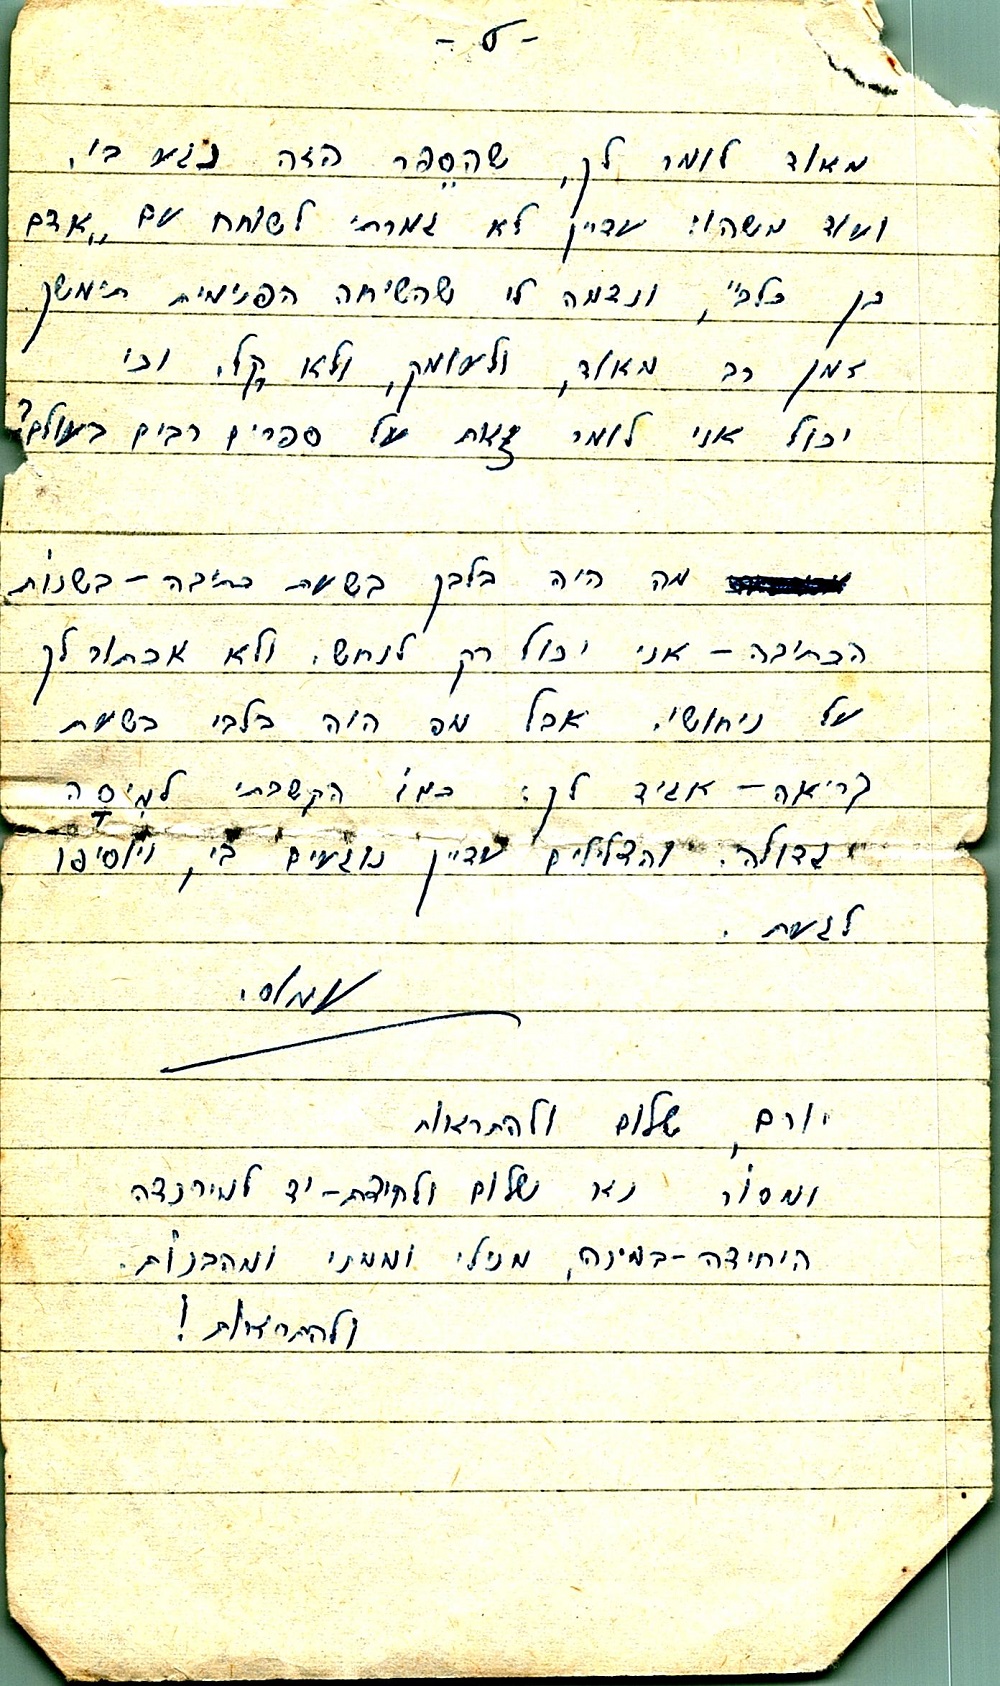 - ט -
מאוד לומר לך, שהספר הזה נגע בי.
ועוד משהו: עדיין לא גמרתי לשוחח עם „אדם
בן כלב", ונדמה לי שהשיחה הפנימית תימשך
זמן רב מאוד, ולעומק, ולא קל. וכי
יכול אני לומר זאת על ספרים רבים בעולם?
מה היה בלבך בשעת כתיבה - בשנות
הכתיבה - אני יכול רק לנחש. ולא אכתור לך
על ניחושי. אבל מה הוה בלבי בשעת
קריאה - אגיד לך: כמו הקשבתי למיסָה
גדולה. והצלילים עדיין נוגעים בי, ויוסיפו
לגעת.
עמוס.
יורם, שלום ולהתראות
ומסור נא שלום ולחיצת-יד למירנדה
היחידה-במינה, מנילי וממני ומהבנות.
ולהתראות!